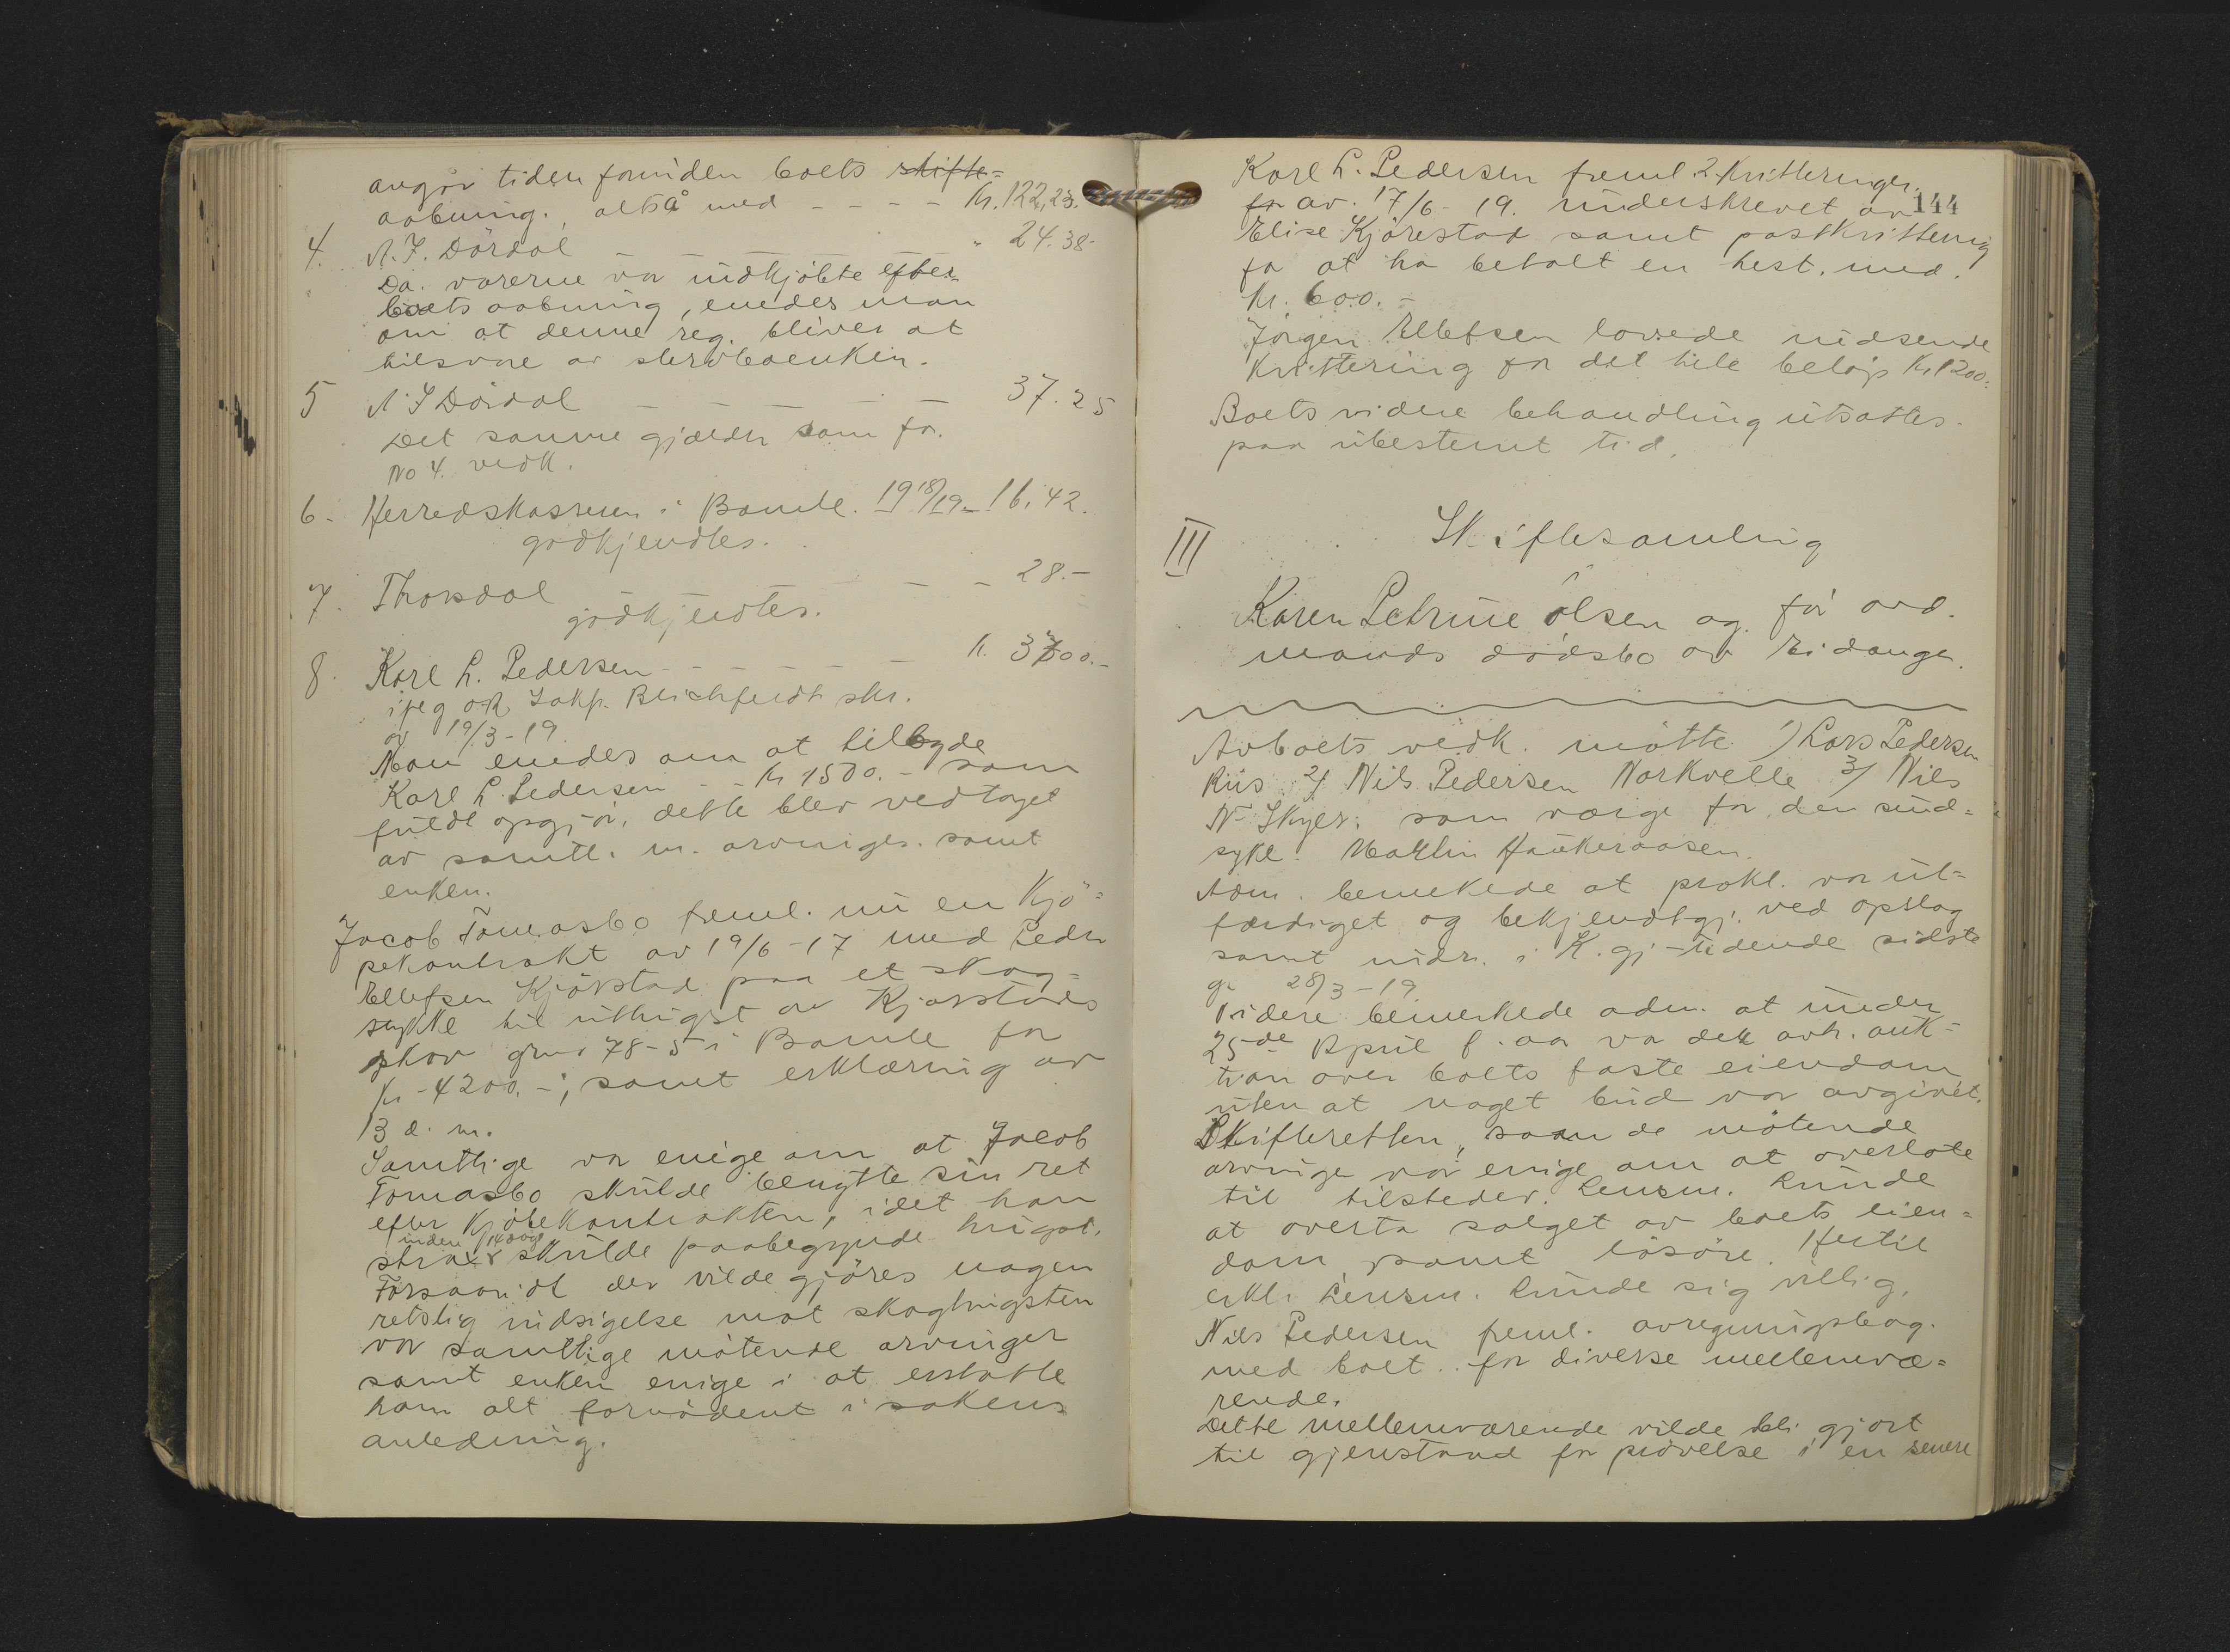 angår tiden forinden boets skifte-
aabning, altså med - - - - kr. 122,23.
4. A. J. Dördal - - - - " 24.38-
Da varerne var indkjöbte efter
boets aabning, enedes man
om at denne reg. bliver at
tilsvare av stervboenken.
5 A. J Dördal - - - - 37.25
Det samme gjælder som for
No 4. vedk.
6- Herredskassen i Bamle. 1918/19- 16.42.
godkjendtes.
7. Thorsdal - - 28.-
godkjendtes.
8. Karl L. Pedersen - - - - - kr. 3300.-
ifeg o.R. Sakf. Blichfeldt skr.
av 19/3-19.
Man enedes om at tilbyde
Karl L. Pedersen - - kr 1500.- som
fuldt opgjör, dette blev vedtaget
av samtl. m. arvinger samt
enken.
Jacob Tomasbo freml. nu en Kjö-
pekontrakt av 19/6-17 med Peder
Ellefsen Kjörstad paa et skog-
stykke til uthugst av Kjørstads
skov gno 78-5 i Bamle for
kr -4200.-; samt erklæring av
13 d. m.
Samtlige var enige om at Jacob
Tomasbo skulde benytte sin ret
efter Kjöbekontrakten, idet han
inden 14 dage
strax skulde paabegynde hugst.
Forsaavidt der vilde gjöres nogen
retslig indsigelse mot skoghugsten
var samtlige mötende arvinger
samt enken enige i at erstatte
ham alt fornödent i sakens
anledning.
Karl L. Pedersen freml. 2 Kvitteringer
144
for av. 17/6-19. underskrevet av
Elise Kjörestad samt postkvittering
for at ha betalt en hest. med.
kr. 600.-
Jörgen Ellefsen lovede indsende
Kvittering for det hele belöp kr 1200.
Boets videre behandling utsattes
paa ubestemt tid.
III Skiftesamling
Karen Petrine Olsen og før avd.
mands dödsbo av Eidanger.
Avboets vedk. mötte 1) Lars Pedersen
Riis 2/ Nils Pedersen Norkvelle 3/ Nils
N. Skyer. som værge for den sind-
syke. Martin Haukeraasen.
Adm. bemerkede at prokl. var ut-
færdiget og bekjendtgj. ved opslag
samt indr. i K.gj-tidende sidste
g. 28/3-19
Videre bemerkede adm. at under
25de April f. aa var det avh. auk-
tion over boets faste eiendom
uten at noget bud var avgivet.
Skifteretten, saavel de mötende
arvinge var enige om at overlate
til tilstedev. Lensm. Lunde
at overta salget av boets eien-
dom, samt lösöre. Hertil
erkl. Lensm. Lunde sig villig.
Nils Pedersen freml. avregningsbog
med boet. for diverse mellemvæ-
rende.
Dette mellemværende vilde bli gjort
til gjenstand for prövelse i en senere